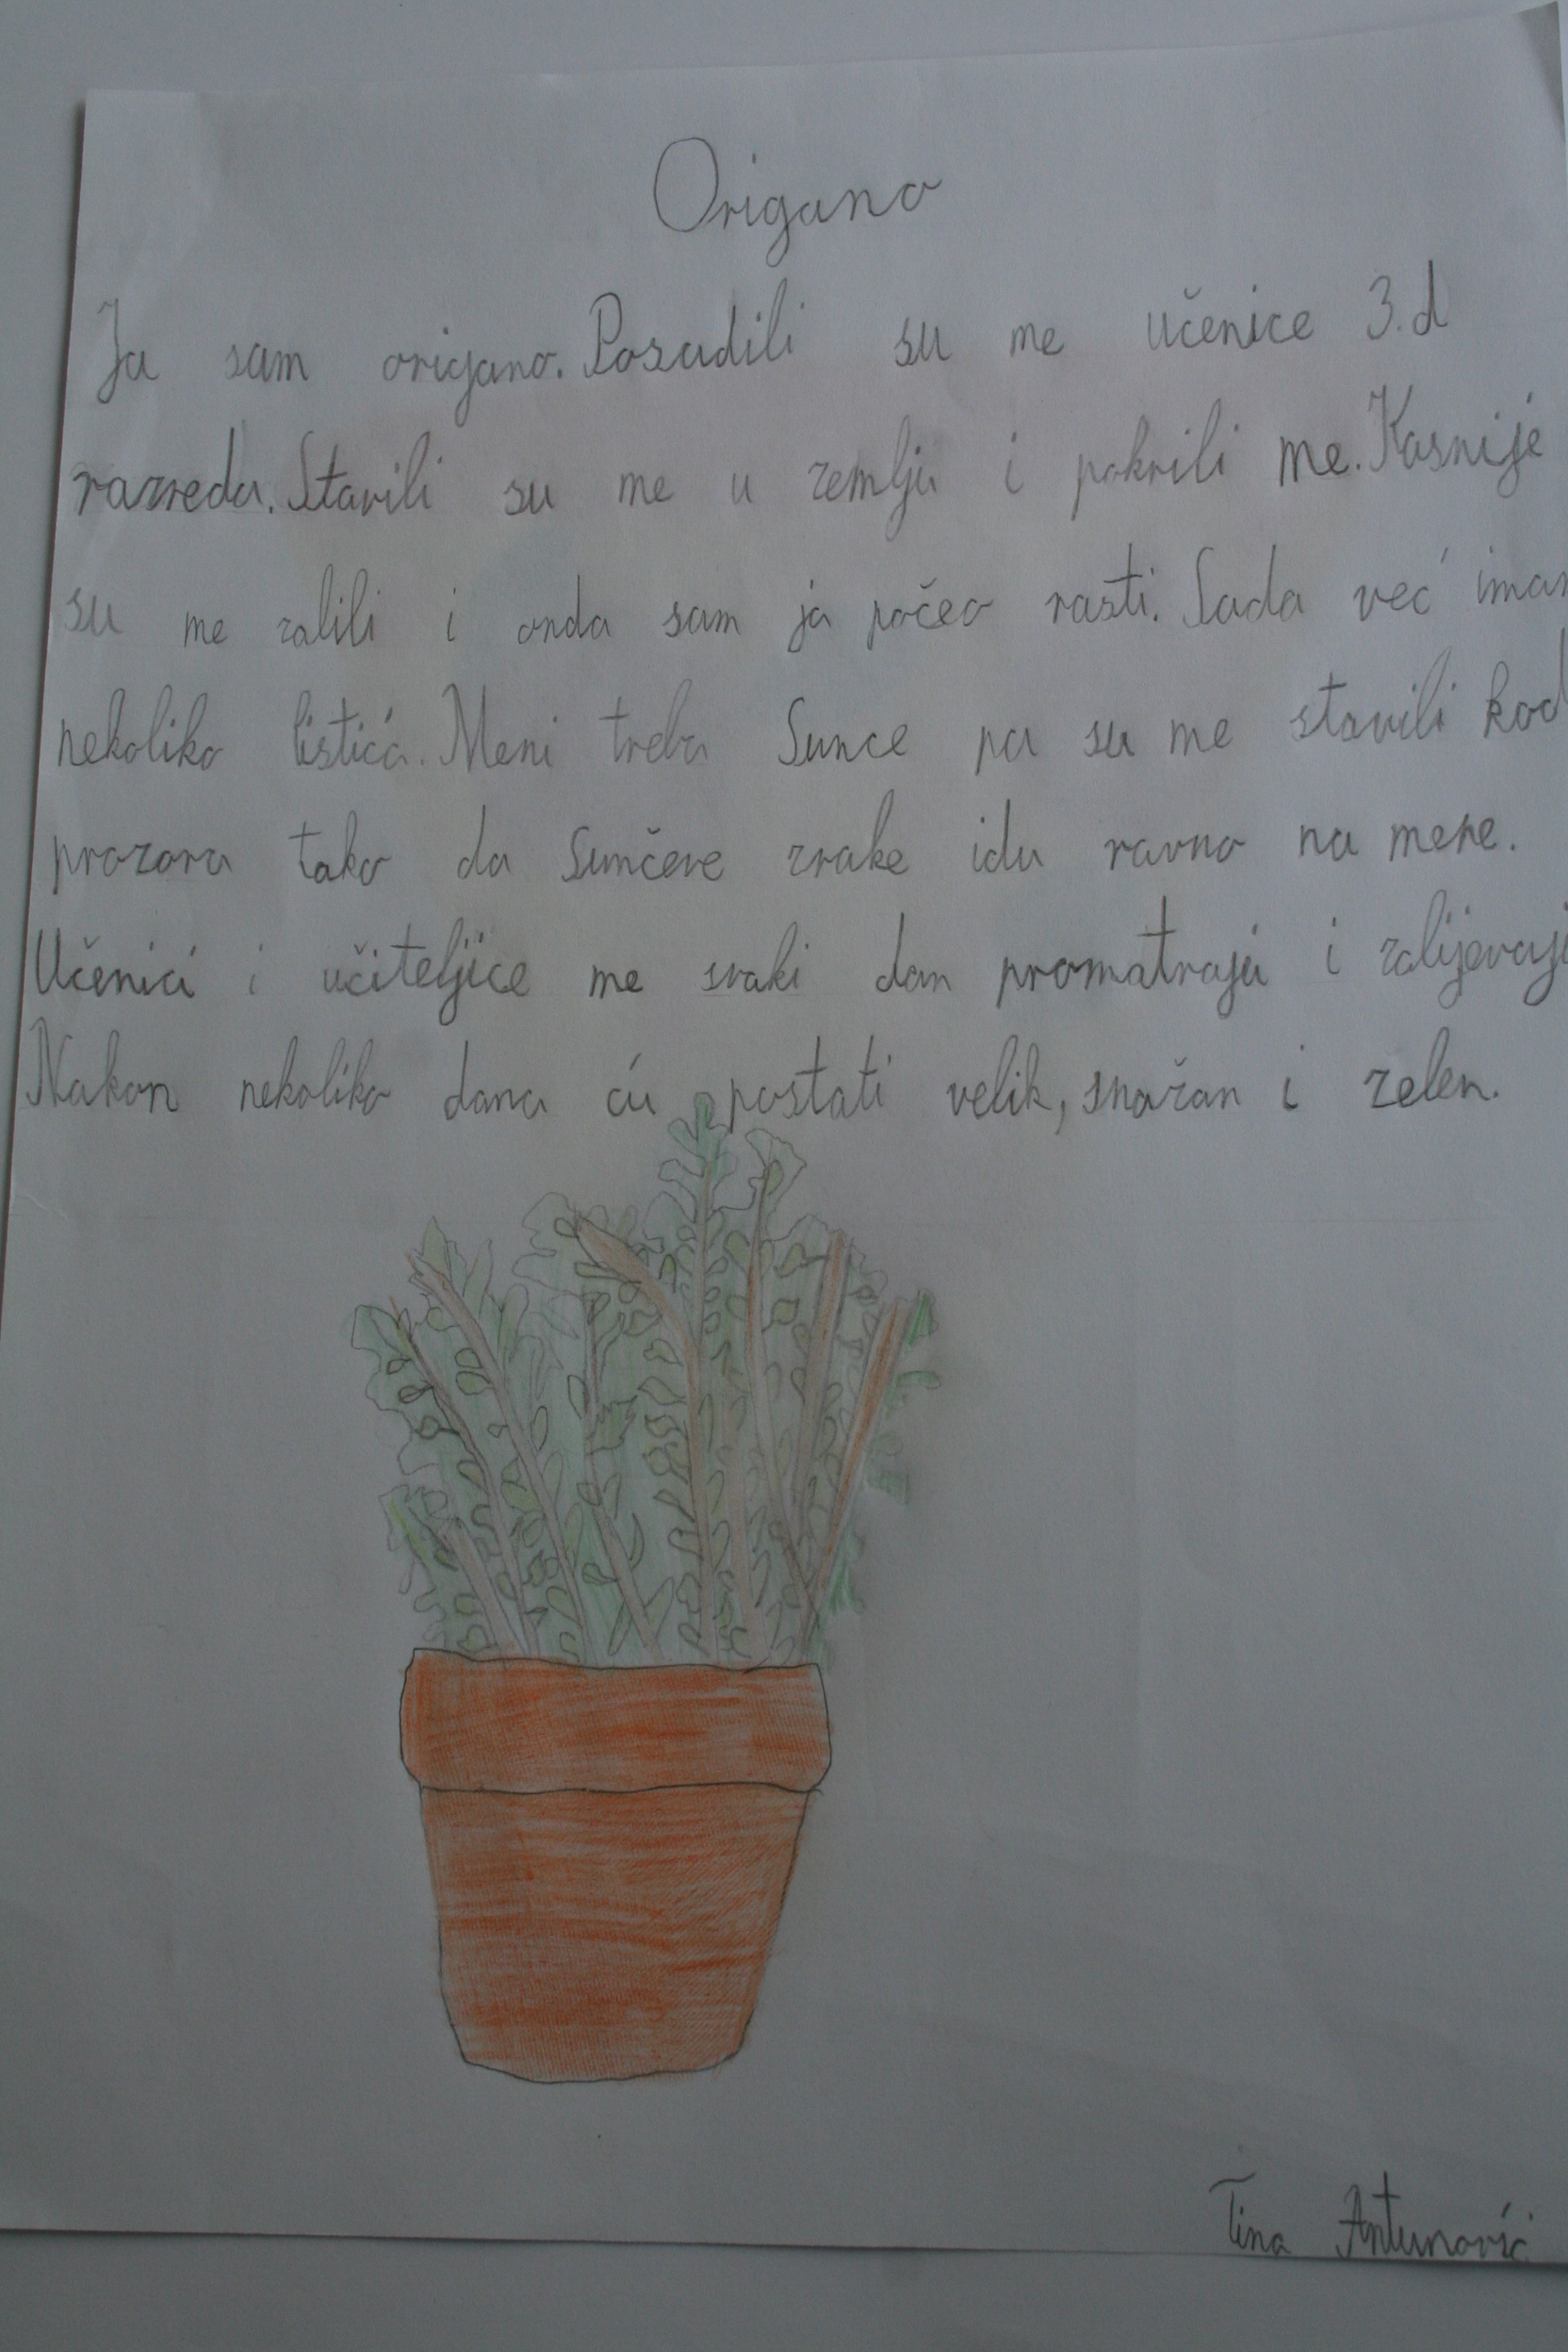 Origano
Ja sam origano. Posadili su me učenice 3.d
razreda. Stavili su me u zemlju i pokrili me. Kasnije
su me zalili i onda sam ja počeo rasti. Sada već imam
nekoliko listića. Meni treba Sunce pa su me stavili kod
prozora tako da Sunčeve zrake idu ravno na mene.
Učenici i učiteljice me svaki dan promatraju i zalijevaju
Nakon nekoliko dana ću postati velik, snažan i zelen.
Tina Antunović